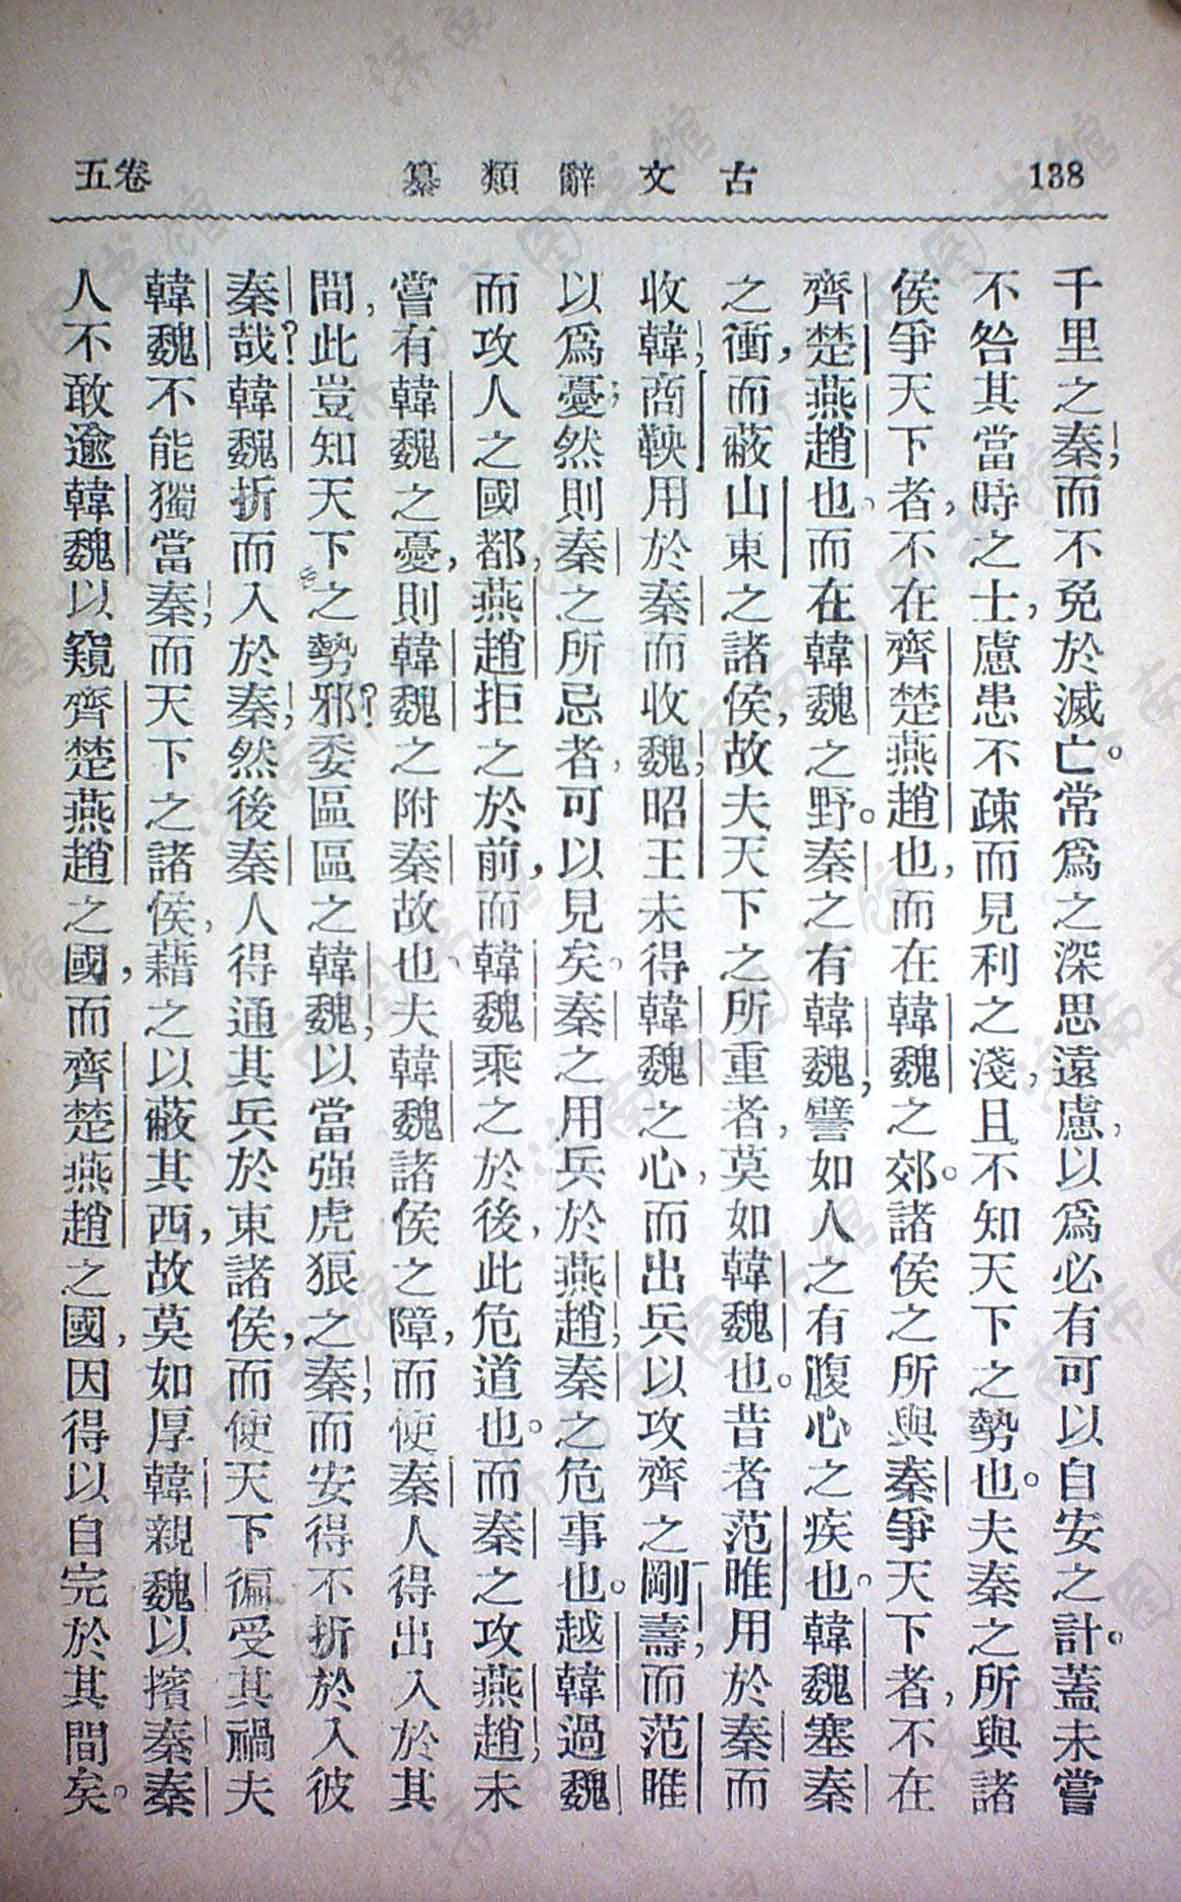 138
古文辭類纂
卷五
千里之秦；而不免於滅亡。常爲之深思遠慮，以爲必有可以自安之計。蓋未嘗
不咎其當時之士，慮患不疎而見利之淺，且不知天下之勢也。夫秦之所與諸
侯爭天下者，不在齊楚燕趙也，而在韓魏之郊。諸侯之所與秦爭天下者，不在
齊楚燕趙也，而在韓魏之野。秦之有韓魏，譬如人之有腹心之疾也。韓魏塞秦
之衝，而蔽山東之諸侯，故夫天下之所重者，莫如韓魏也。昔者范睢用於秦而
收韓，商鞅用於秦而收魏；昭王未得韓魏之心，而出兵以攻齊之剛壽，而范睢
以爲憂；然則秦之所忌者，可以見矣。秦之用兵於燕趙，秦之危事也。越韓過魏
而攻人之國都，燕趙拒之於前，而韓魏乘之於後，此危道也。而秦之攻燕趙，未
嘗有韓魏之憂，則韓魏之附秦故也。夫韓魏諸侯之障，而使秦人得出入於其
間，此豈知天下之勢邪？委區區之韓魏，以當强虎狼之秦，而安得不折於入彼
秦哉？韓魏折而入於秦，然後秦人得通其兵於東諸侯，而使天下徧受其禍夫
韓魏不能獨當秦，而天下之諸侯，藉之以蔽其西，故莫如厚韓親魏以擯秦秦
人不敢逾韓魏以窺齊楚燕趙之國，而齊楚燕趙之國，因得以自完於其間矣。